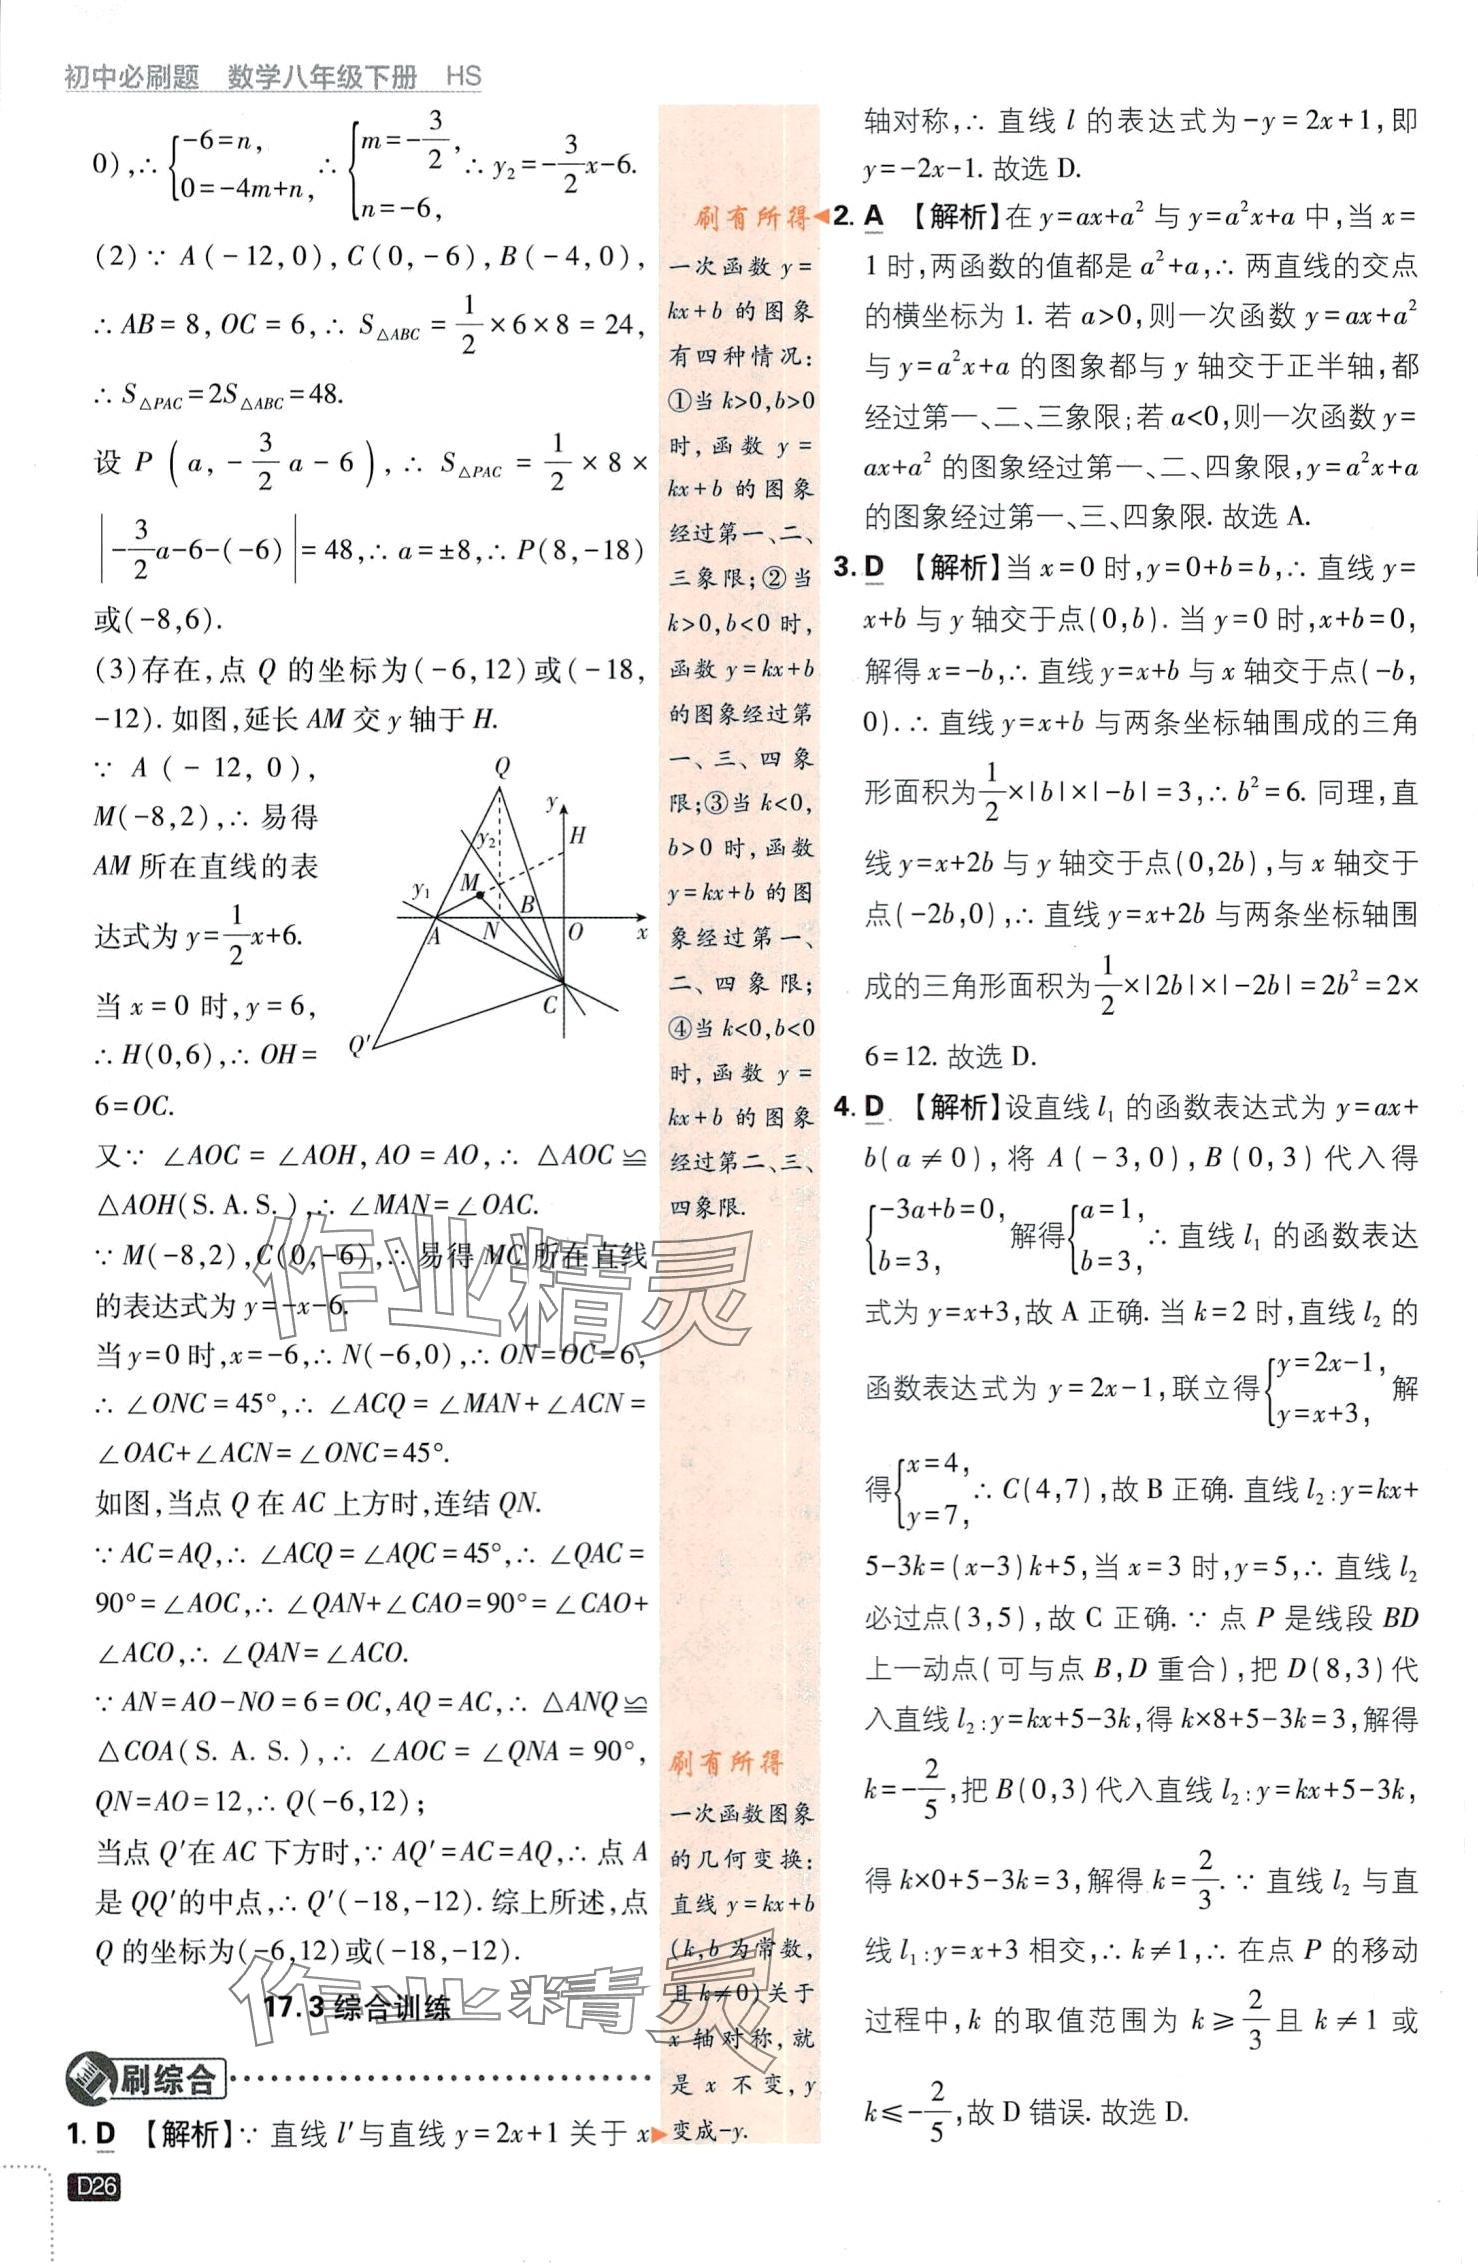 初中必刷题 数学八年级下册 HS
0),∴{-6=n, 0=-4m+n, ∴{m=-3/2, n=-6, ∴y₂=-3/2x-6.
(2)∵ A(-12,0),C(0,-6),B(-4,0),
∴AB=8,OC=6,∴ S△ABC=1/2×6×8=24,
∴S△PAC=2S△ABC=48.
设 P(a,-3/2a-6),∴ S△PAC=1/2×8×
|-3/2a-6-(-6)|=48,∴a=±8,∴P(8,-18)
或(-8,6).
(3)存在,点 Q 的坐标为(-6,12)或(-18,
-12).如图,延长 AM 交 y 轴于 H.
∵ A(-12,0),
M(-8,2),∴易得
AM 所在直线的表
达式为 y=1/2x+6.
当 x=0 时,y=6,
∴H(0,6),∴OH=
6=OC.
Q
y
H
y₂
y₁
M
B
A
N
O
x
C
Q′
又∵ ∠AOC=∠AOH,AO=AO,∴ △AOC≌
△AOH(S.A.S.),∴∠MAN=∠OAC.
∵M(-8,2),C(0,-6),∴易得 MC 所在直线
的表达式为 y=-x-6.
当 y=0 时,x=-6,∴N(-6,0),∴ON=OC=6,
∴∠ONC=45°,∴ ∠ACQ=∠MAN+∠ACN=
∠OAC+∠ACN=∠ONC=45°.
如图,当点 Q 在 AC 上方时,连结 QN.
∵AC=AQ,∴ ∠ACQ=∠AQC=45°,∴ ∠QAC=
90°=∠AOC,∴ ∠QAN+∠CAO=90°=∠CAO+
∠ACO,∴ ∠QAN=∠ACO.
∵AN=AO-NO=6=OC,AQ=AC,∴ △ANQ≌
△COA(S.A.S.),∴ ∠AOC=∠QNA=90°,
QN=AO=12,∴Q(-6,12);
当点 Q′在 AC 下方时,∵AQ′=AC=AQ,∴点 A
是 QQ′的中点,∴Q′(-18,-12).综上所述,点
Q 的坐标为(-6,12)或(-18,-12).
17.3 综合训练
刷综合
1. D 【解析】∵ 直线 l′与直线 y=2x+1 关于 x
D26
刷有所得
一次函数 y=
kx+b 的图象
有四种情况:
①当 k>0,b>0
时,函数 y=
kx+b 的图象
经过第一、二、
三象限;②当
k>0,b<0 时,
函数 y=kx+b
的图象经过第
一、三、四象
限;③当 k<0,
b>0 时,函数
y=kx+b 的图
象经过第一、
二、四象限;
④当 k<0,b<0
时,函数 y=
kx+b 的图象
经过第二、三、
四象限.
刷有所得
一次函数图象
的几何变换:
直线 y=kx+b
(k,b 为常数,
且 k≠0)关于
x 轴对称,就
是 x 不变,y
变成-y.
轴对称,∴ 直线 l 的表达式为-y=2x+1,即
y=-2x-1. 故选 D.
2. A 【解析】在 y=ax+a² 与 y=a²x+a 中,当 x=
1 时,两函数的值都是 a²+a,∴ 两直线的交点
的横坐标为 1. 若 a>0,则一次函数 y=ax+a²
与 y=a²x+a 的图象都与 y 轴交于正半轴,都
经过第一、二、三象限;若 a<0,则一次函数 y=
ax+a² 的图象经过第一、二、四象限,y=a²x+a
的图象经过第一、三、四象限. 故选 A.
3. D 【解析】当 x=0 时,y=0+b=b,∴ 直线 y=
x+b 与 y 轴交于点(0,b). 当 y=0 时,x+b=0,
解得 x=-b,∴ 直线 y=x+b 与 x 轴交于点(-b,
0).∴ 直线 y=x+b 与两条坐标轴围成的三角
形面积为1/2×|b|×|-b|=3,∴b²=6. 同理,直
线 y=x+2b 与 y 轴交于点(0,2b),与 x 轴交于
点(-2b,0),∴ 直线 y=x+2b 与两条坐标轴围
成的三角形面积为1/2×|2b|×|-2b|=2b²=2×
6=12. 故选 D.
4. D 【解析】设直线 l₁ 的函数表达式为 y=ax+
b(a≠0),将 A(-3,0),B(0,3)代入得
{-3a+b=0, b=3, 解得{a=1, b=3, ∴ 直线 l₁ 的函数表达
式为 y=x+3,故 A 正确. 当 k=2 时,直线 l₂ 的
函数表达式为 y=2x-1,联立得{y=2x-1, y=x+3, 解
得{x=4, y=7, ∴C(4,7),故 B 正确. 直线 l₂:y=kx+
5-3k=(x-3)k+5,当 x=3 时,y=5,∴ 直线 l₂
必过点(3,5),故 C 正确.∵ 点 P 是线段 BD
上一动点(可与点 B,D 重合),把 D(8,3)代
入直线 l₂:y=kx+5-3k,得 k×8+5-3k=3,解得
k=-2/5,把 B(0,3)代入直线 l₂:y=kx+5-3k,
得 k×0+5-3k=3,解得 k=2/3.∵ 直线 l₂ 与直
线 l₁:y=x+3 相交,∴k≠1,∴ 在点 P 的移动
过程中,k 的取值范围为 k≥2/3且 k≠1 或
k≤-2/5,故 D 错误. 故选 D.
作业精灵
作业精灵